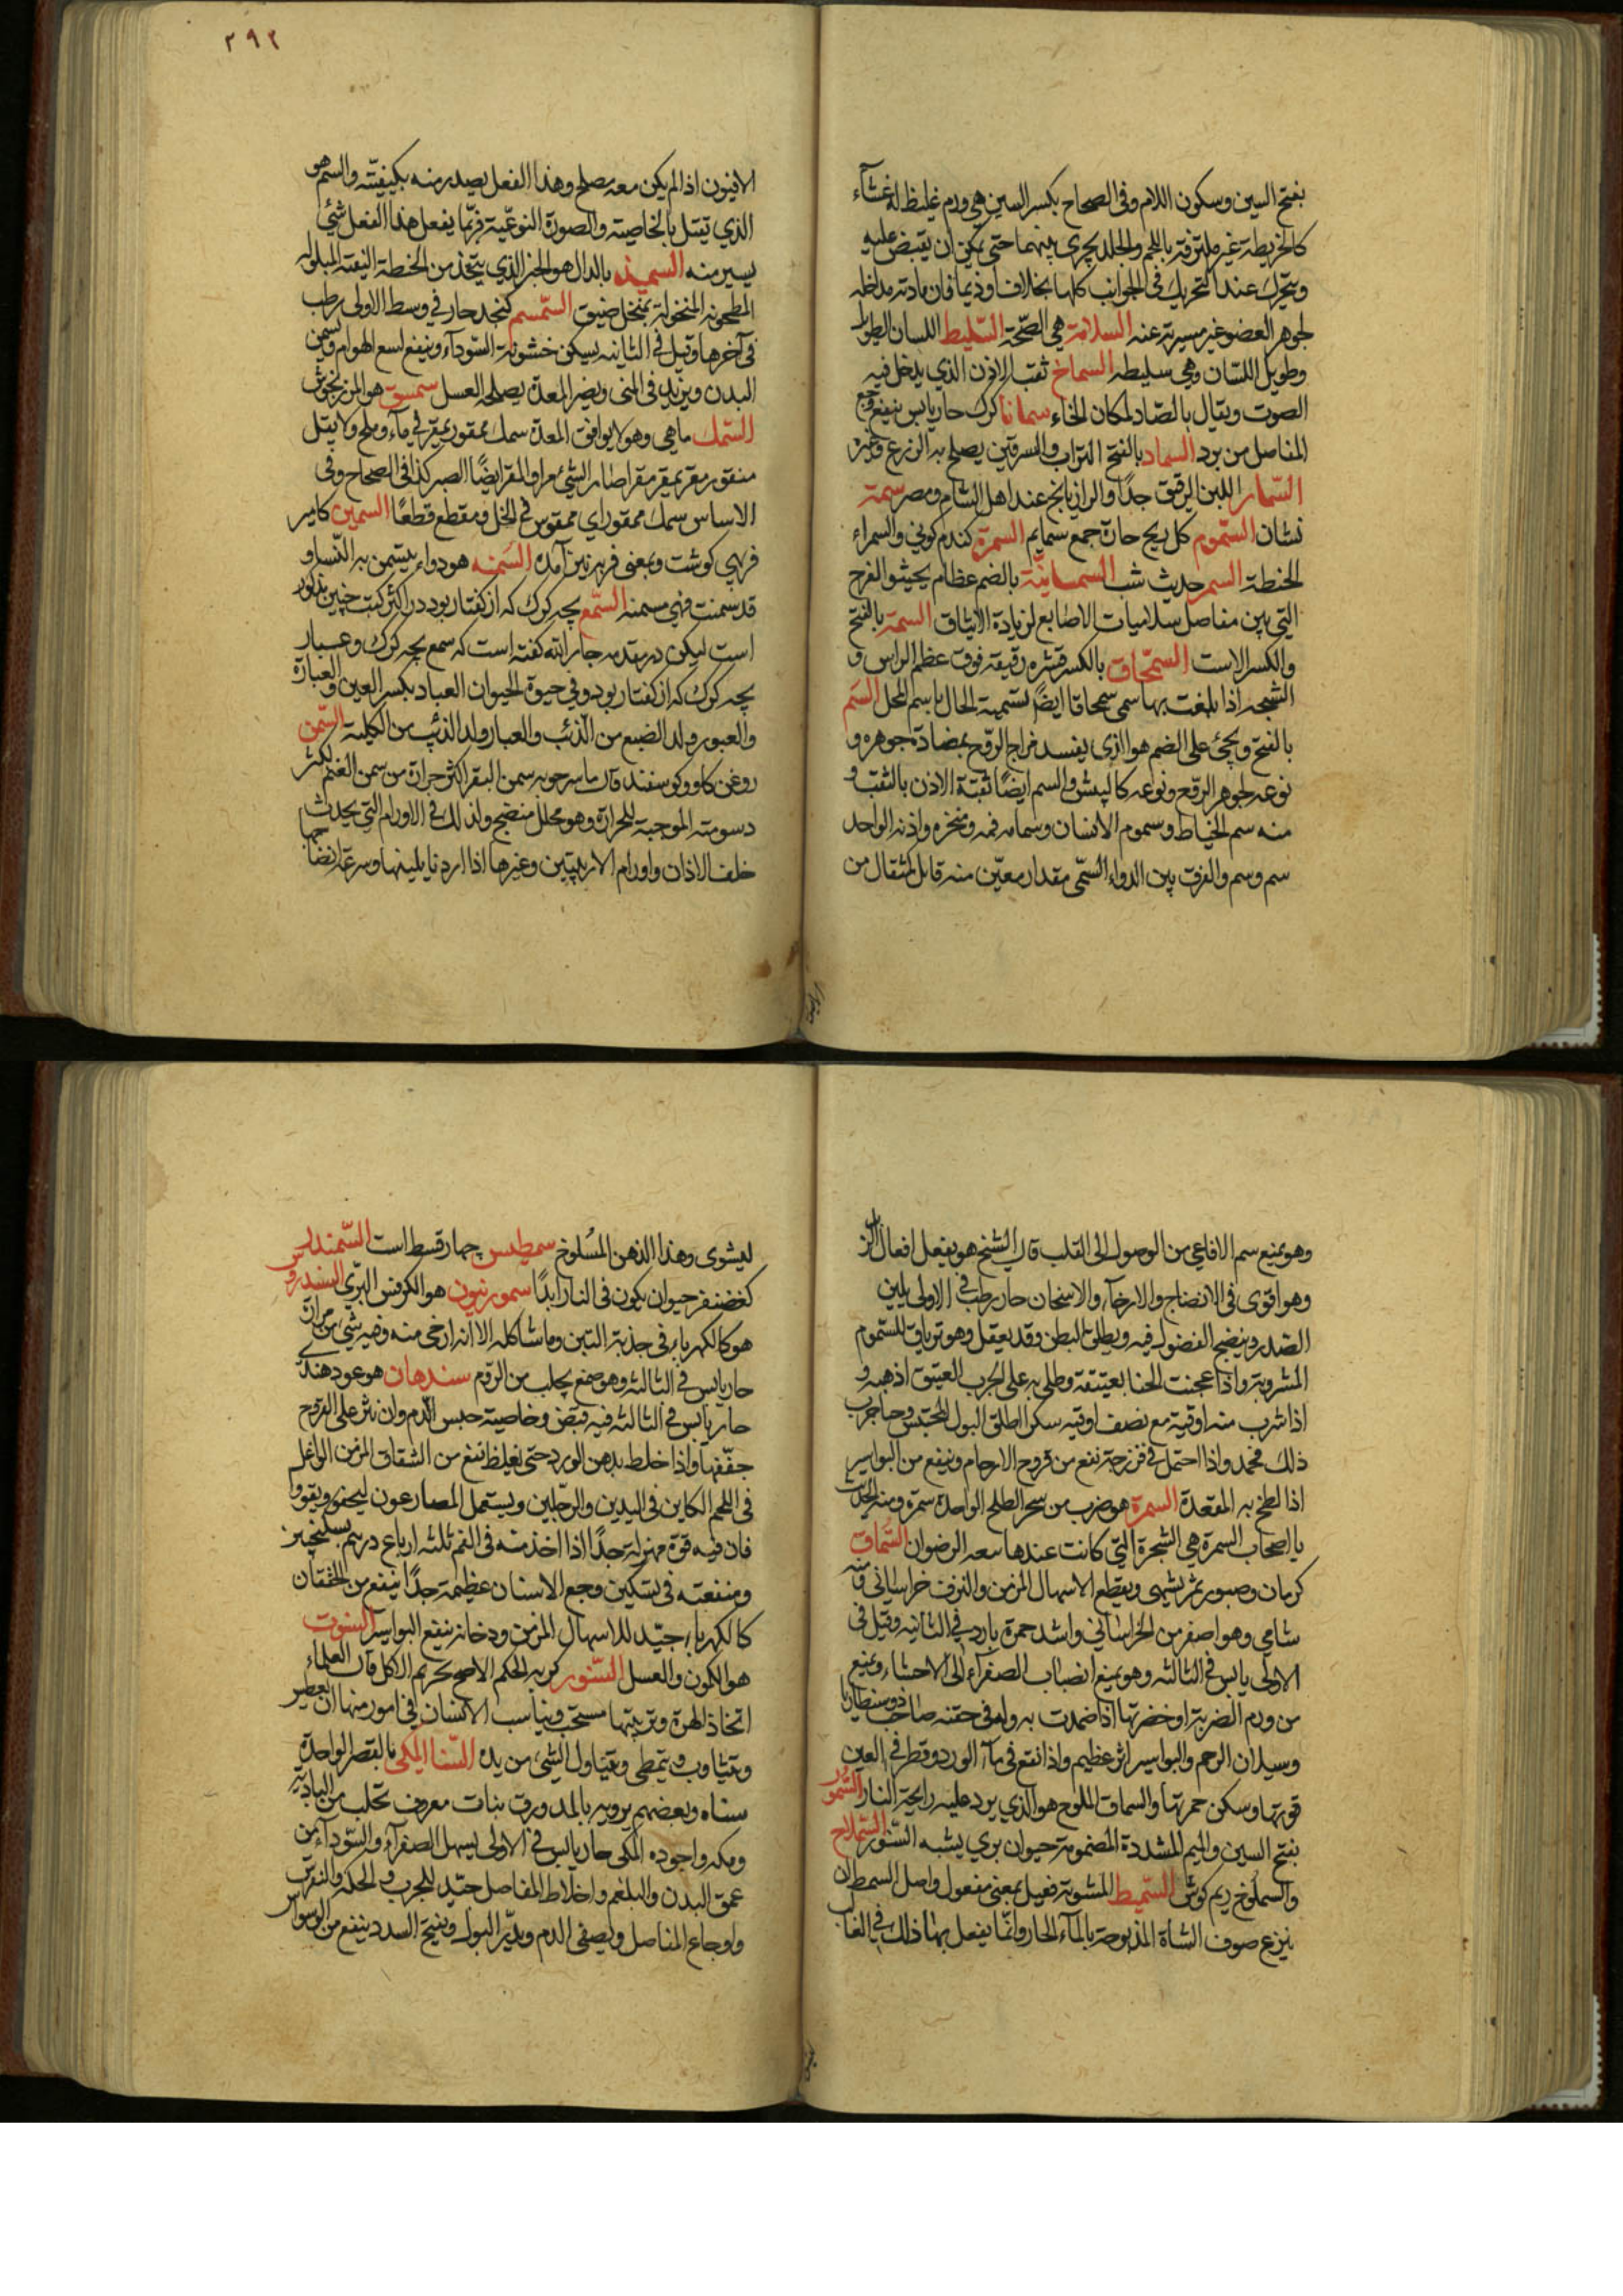 بفتح السين وسكون اللام وفى الصحاح بكسر السين هى ورم غليظ له غشآء
كالخريطة غير ملتزقة باللحم والجلد يجرى بينهما حتى يمكن ان يقبض عليه
ويتحرك عند التحريك فى الجوانب كلها بخلاف اوذيما فان مادته مداخله
لجوهر العضو غير مميزة عنه السلامة هى الصّحة السّليط اللسان الطويل
وطويل اللسان وهى سليطه السماخ ثقب الاذن الذي يدخل فيه
الصوت ويقال بالصّاد لمكان الخاء سمانا كرك حار يابس ينفع وجع
المفاصل من برد السماد بالفتح التراب والسرقين يصلح به الزرع وغيره
السّمار اللبن الرقيق جدًا والرازيانج عند اهل الشام ومصر سمة
نشان السّموم كل ريح حارة جمع سمايم السمرة كندم كونى والسمراء
الحنطة السمر حديث شب السمسانيّة بالضم عظام يحيشوا الفرج
التى بين مفاصل سلاميات الاصابع لزيادة الايثاق السمة بالفتح
والكسر الاست السمّحاق بالكسر قشره رقيقة فوق عظم الراس و
الشجه اذا بلغت بها سمى سمحاقا ايضًا تسمية الحال باسم المحل السّم
بالفتح ويجئ على الضم هو الذى يفسد مزاج الروّح بمضادة جوهره و
نوعه لجوهر الروّح ونوعه كالبيش والسم ايضًا ثقبة الاذن بالثقب و
منه سم الخياط وسموم الانسان وسمامه فمه ومنخره واذنه الواحد
سم وسم والفرق بين الدواء السّمّى مقدار معيّن منه قاتل كمثقال من
٢٩٢
الافيون اذا لم يكن معه مصلح وهذا الفعل يصدر منه بكيفيّته والسم هو
الذي يقتل بالخاصية والصورة النوعّية فربّما يفعل هذا الفعل شئ
يسير منه السميذ بالدال هو الخبز الذي يتخذ من الحنطة النيقة المبلوله
المطحونه المنخولة بمنخل ضيق السّمسم كنجد حار فى وسط الاولى رطب
فى آخرها وقيل فى الثانيه يسكن خشونة السّودآء وينفع لسع الهوام ويسمن
البدن ويزيد فى المنى ويضر المعدة يصلحه العسل سمسق هو المرزنجوش
السّمك ماهى وهو لا يوافق المعدة سمك ممقور يمقر فى مآء وملح ولا يقال
منقور مقر يمقر مقرا صار الشئ مرا والمقر ايضًا الصبر كذا فى الصحاح وفى
الاساس سمك ممقور اي ممقوس فى الخل ومقطع قطعًا السمين كامير
فربهى كوشت وبمعنى فربه نيز آمده السّمنه هو دواء يتسمن به النّساء و
قد سمنت فهى مسمنه السّمع بچه كرك كه از كفتار بود در اكثر كتب چنين مذكور
است ليكن در مقدمه جار الله كفته است كه سمع بچه كرك وعسبار
بچه كرك كه از كفتار بود وفى حيوة الحيوان العباد بكسر العين والعبارة
والعبور ولد الضبع من الذئب والعبار ولد الذئب من الكلبة السّمن
روغن كاو وكوسفند قال ماسرجويه سمن البقر اكثر حرارة من سمن الغنم لكثر
دسومته الموجبة للحرارة وهو محلل منضج ولذلك فى الاورام التى يحدث
خلف الاذان واورام الاربيتين وغيرها اذا اردنا يلينها وسرعة انضاجها
وهو يمنع سم الافاعى من الوصول الى القلب قال الشيخ هو يفعل افعال الزبد
وهو اقوى فى الانضاج والارخآء والاسخان حار رطب فى الاولى يلين
الصّدر وينضج الفضول فيه ويطلق البطن وقد يعقل وهو ترياق للسّموم
المشروبة واذا عجنت الحنا بعيتقة وطلى به على الجرب العتيق اذهبه و
اذا شرب منه اوقية مع نصف اوقيه سكر اطلق البول المحتبس وجا جرب
ذلك محمد واذا احتمل فى فرزجة نفع من قروح الارحام وينفع من البواسير
اذا لطخ به المقعدة السمرة هو ضرب من شجر الطلح الواحدة سمرة ومنه الحديث
يا اصحاب السمرة هى الشجرة التى كانت عندها بيعه الرضوان السّماق
كرمان وصبور ثمر يشهى ويقطع الاسهال المزمن والنزف خراسانى ومنه
شامى وهو اصفر من الخراسانى واشد حمرة بارد فى الثانيه وقيل فى
الاولى يابس فى الثالثه وهو يمنع انصباب الصفراء الى الاحشاء ويمنع
من ورم الضربة وخضرتها اذا ضمدت به وله فى حقنه صاحب ذوسنطاريا
وسيلان الرحم والبواسير اثر عظيم واذا نقع فى مآء الورد وقطر فى العين
قوتها وسكن حمرتها والسماق الملوح هو الذي يرد عليه رايحة النار السّمور
بفتح السين والميم المشددة المضمومة حيوان بري يشبه السّنور السّملاخ
والسملوخ ريم كوش السّميط المشوية فعيل بمعنى مفعول واصل السمط ان
ينزع صوف الشاة المذبوحة بالمآء الحار وانّما يفعل بها ذلك فى الغالب
ليشوى وهذا الذهن المسُلوخ سمطيس چهار قسط است السّمندل
كغضنفر حيوان يكون فى النار ابدًا سمورنيون هو الكرفس البرّى السندروس
هو كالكهربا فى جذبة التبن وما شاكله الا انه ارخى منه وفيه شئ من مرارة
حار يابس فى الثالثه وهو صمغ يجلب من الروم سندهان هو عود هندى
حار يابس فى الثالثه فيه قبض وخاصيته حبس الدم وان نثر على القروح
جفّفها واذا خلط بدهن الورد حتى يغلظ نفع من الشقاق المزمن الواغل
فى اللحم الكاين فى اليدين والرجلين ويستعمل المصارعون ليخفوا ويقووا
فان فيه قوة مهزلة جدًا اذا اخذ منه فى الفم ثلثه ارباع درهم بسكنجبين
ومنفعته فى تسكين وجع الاسنان عظيمة جدًا ينفع من الخفقان
كالكهربا جيّد للاسهال المزمن ودخانه ينفع البواسير السنوت
هو الكمون والعسل السّنور كربه الحكم الاصح تحريم الاكل قال العلماء
اتخاذ الهرة وتربيتها مستحب ويناسب الانسان فى امور منها ان يعطس
ويتثاوب ويتمطى ويتناول الشئ من يده السّنا المكى بالقصر الواحدة
سناه وبعضهم يرويه بالمد ورق نبات معروف تجلب من البادية
ومكه واجوده المكى حار يابس فى الاولى يسهل الصفرآء والسّودآء من
عمق البدن والبلغم واخلاط المفاصل جيّد للجرب والحكة والنقرس
واوجاع المفاصل ويصفى الدم ويدرّ البول ويفتح السدد ينفع من الوسواس